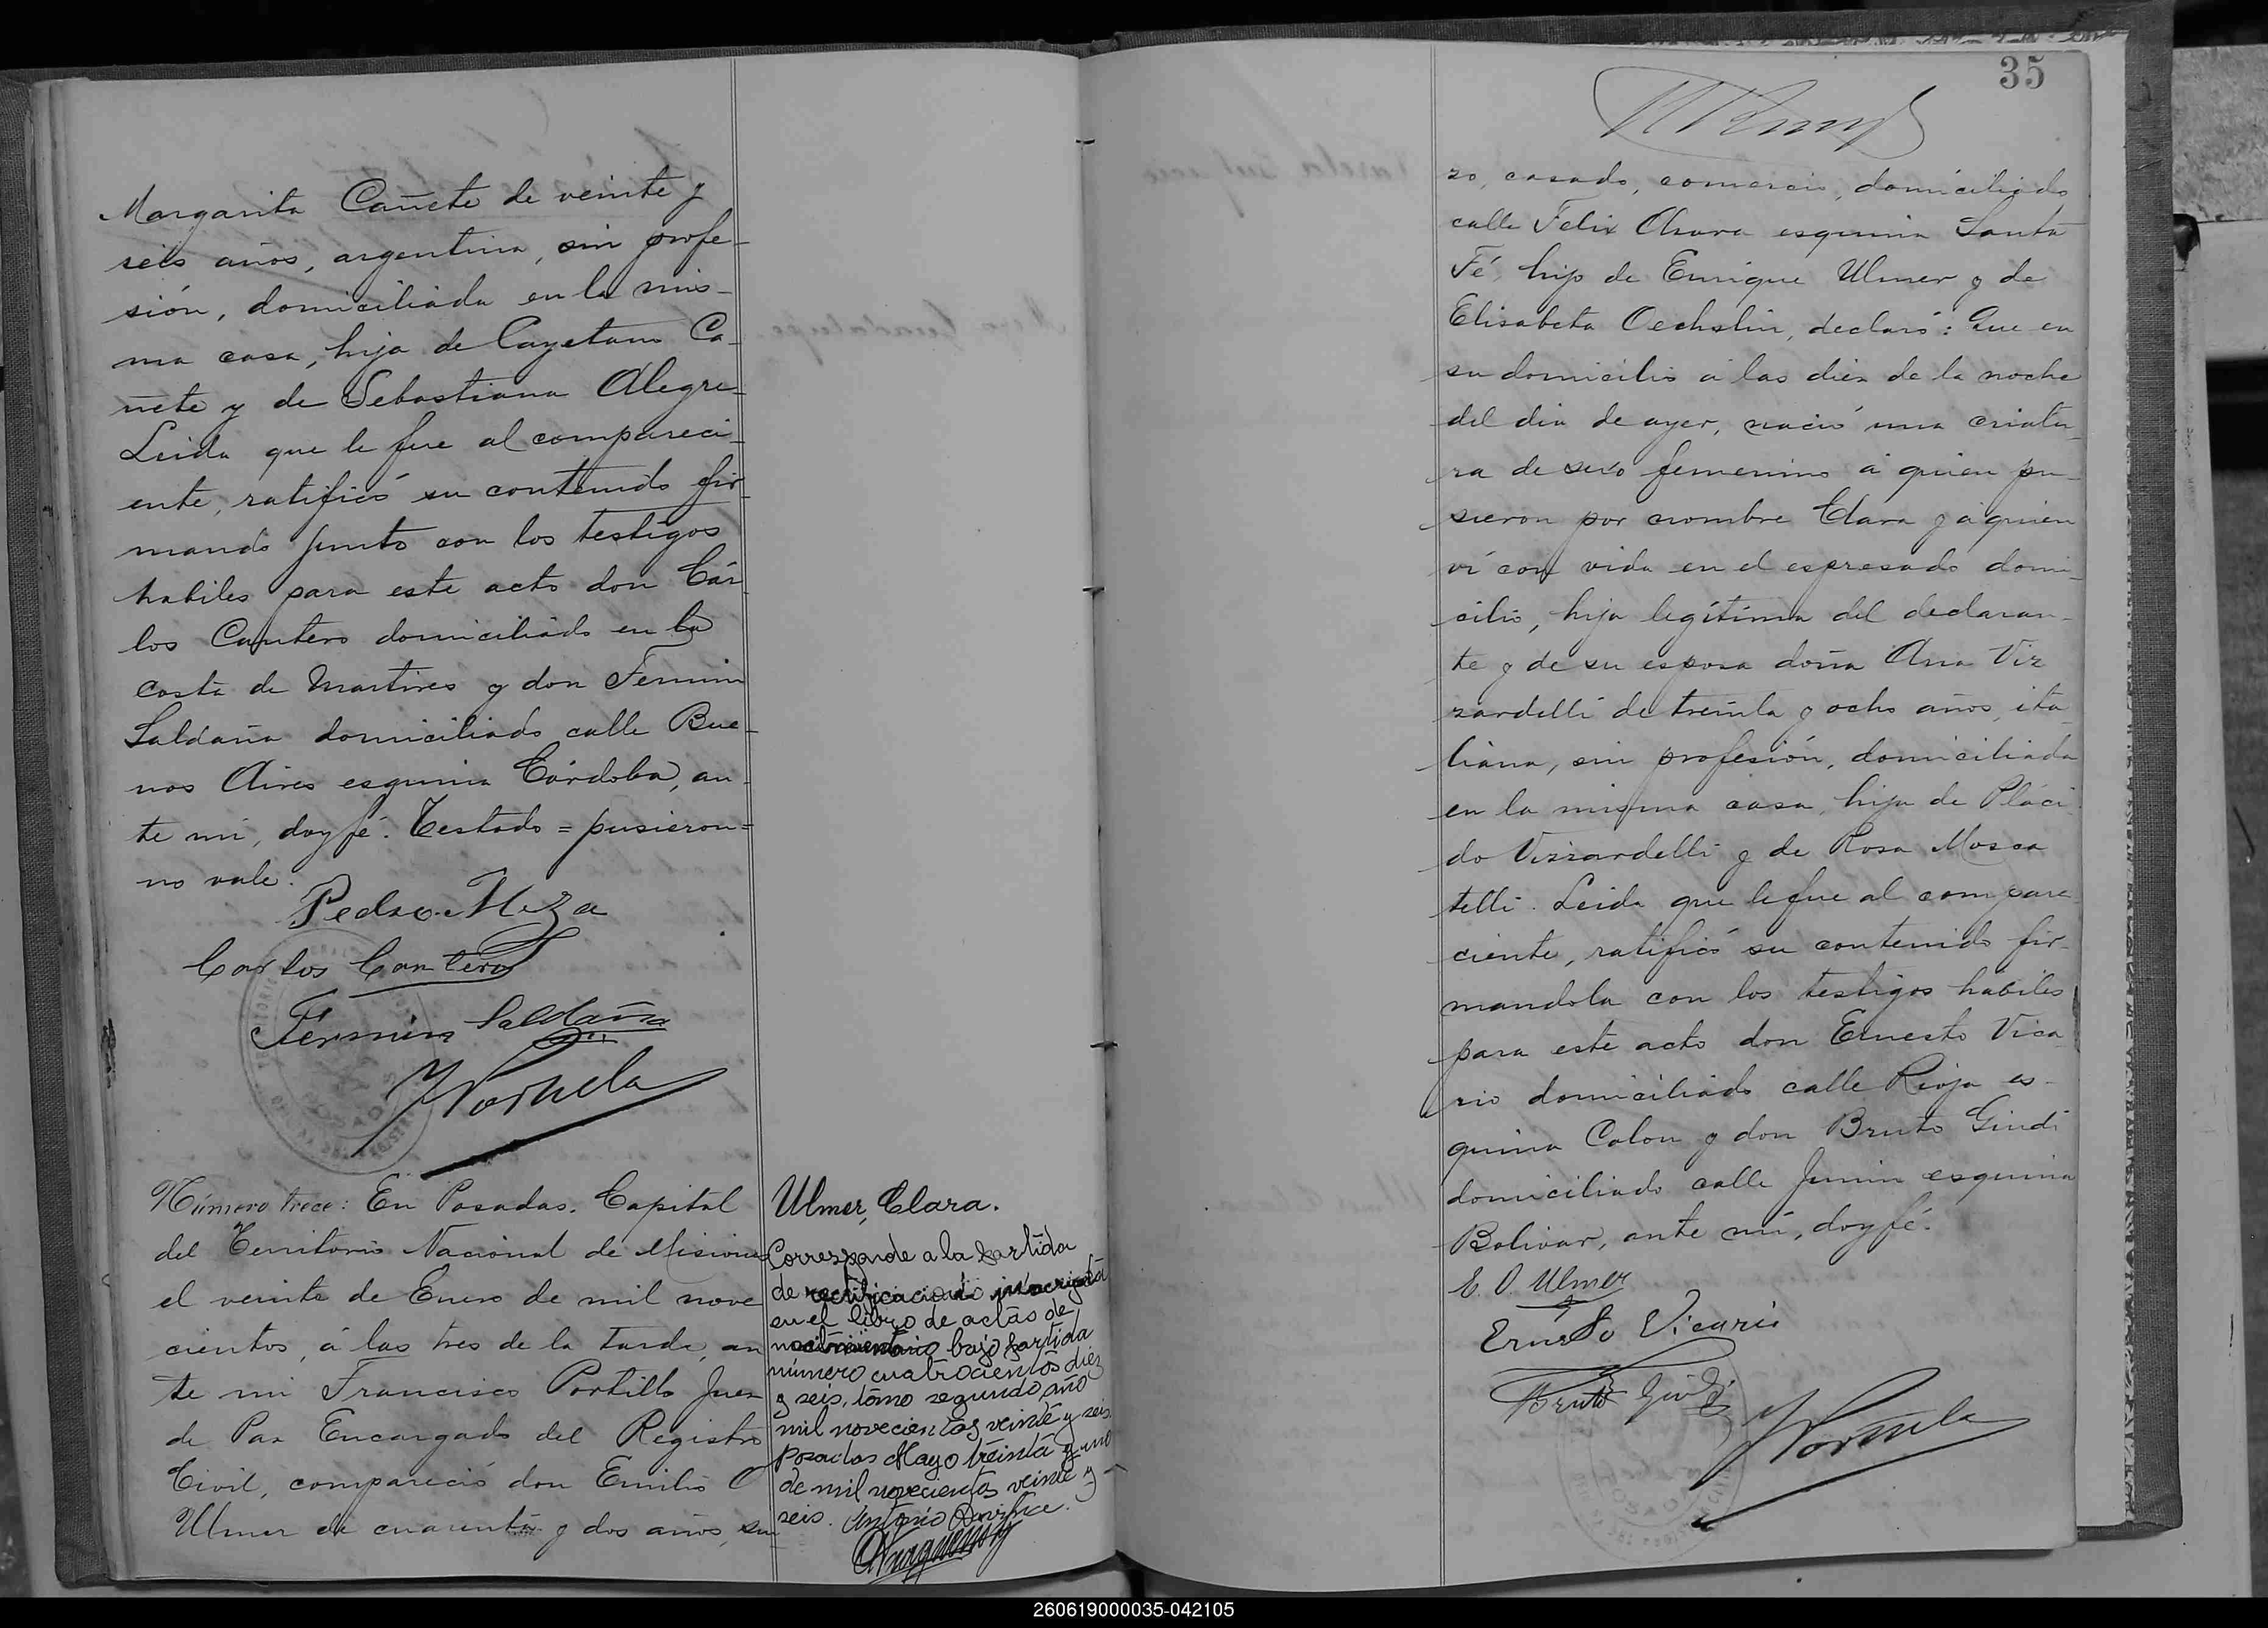 Margarita Cañete de veinte y
seis años, argentina, sin profe-
sión, domiciliada en la mis-
ma casa, hija de Cayetano Ca-
ñete y de Sebastiana Alegre-
Leida que le fue al compareci-
ente, ratificó su contenido fir-
mando junto con los testigos
habiles para este acto don Cár-
los Cantero domiciliado en la
costa de Martires y don Fermin
Saldaña domiciliado calle Bue-
nos Aires esquina Córdoba, an-
te mi, doy fé. Testado = pusieron =
no vale.
Pedro Meza
Carlos Cantero
Fermin Saldaña
Número trece: En Posadas. Capital
del Territorio Nacional de Misiones
el veinte de Enero de mil nove
cientos, á las tres de la tarde, an
te mi Francisco Portillo Juez
de Paz Encargado del Registro
Civil, compareció don Emilio O
Ulmer de cuarenta y dos años, sui
Ulmer, Clara.
Corresponde a la partida
de rectificación inscripta
en el libro de actas de
nacimiento bajo partida
número cuatrocientos diez
y seis, tomo segundo, año
mil novecientos veinte y seis.
Posadas Mayo treinta y uno
de mil novecientos veinte y
seis. Antonio
35
zo, casado, comercio, domiciliado
calle Felix Azara esquina Santa
Fé, hijo de Enrique Ulmer y de
Elisabeta Oechslin, declaró: Que en
su domicilio á las diez de la noche
del dia de ayer, nació una criatu-
ra de sexo femenino á quien pu-
sieron por nombre Clara y á quien
ví con vida en el espresado domi-
cilio, hija legítima del declaran-
te y de su esposa doña Ana Viz
zardelli de treinta y ocho años, ita-
liana, sin profesión, domiciliada
en la misma casa, hija de Pláci-
do Vizzardelli y de Rosa Mosca
telli. Leida que le fue al compare
ciente, ratificó su contenido fir-
mandola con los testigos habiles
para este acto don Ernesto Vica
rio domiciliado calle Rioja es-
quina Colon y don Bruto Giudi
domiciliado calle Junin esquina
Bolivar, ante mi, doy fé.
E. O. Ulmer
Ernesto Vicario
Bruto Giudi
260619000035-042105